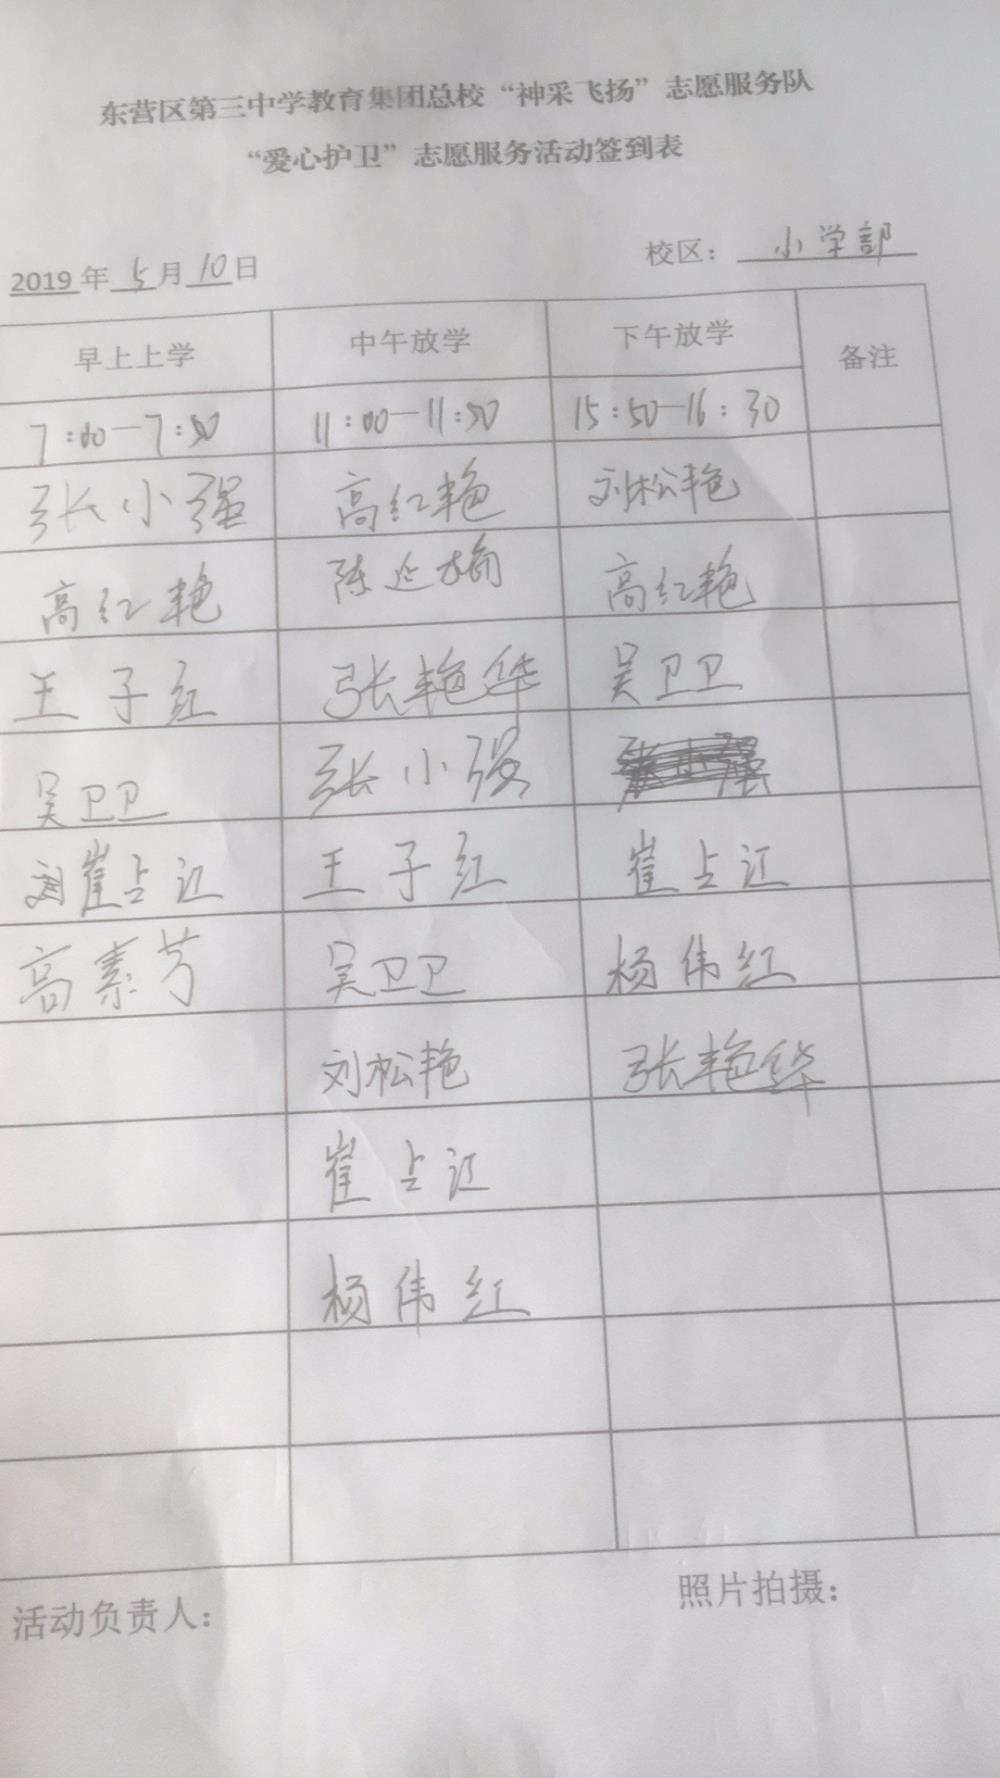 东营区第三中学教育集团总校“神采飞扬”志愿服务队
“爱心护卫”志愿服务活动签到表
2019年5月10日 校区：小学部
早上上学 中午放学 下午放学 备注
7:00-7:50 11:00-11:50 15:50-16:30
张小强 高红艳 刘松艳
高红艳 陈延梅 高红艳
王子红 张艳华 吴卫卫
吴卫卫 张小强
崔占江 王子红 崔占江
高素芳 吴卫卫 杨伟红
刘松艳 张艳华
崔占江
杨伟红
活动负责人： 照片拍摄：